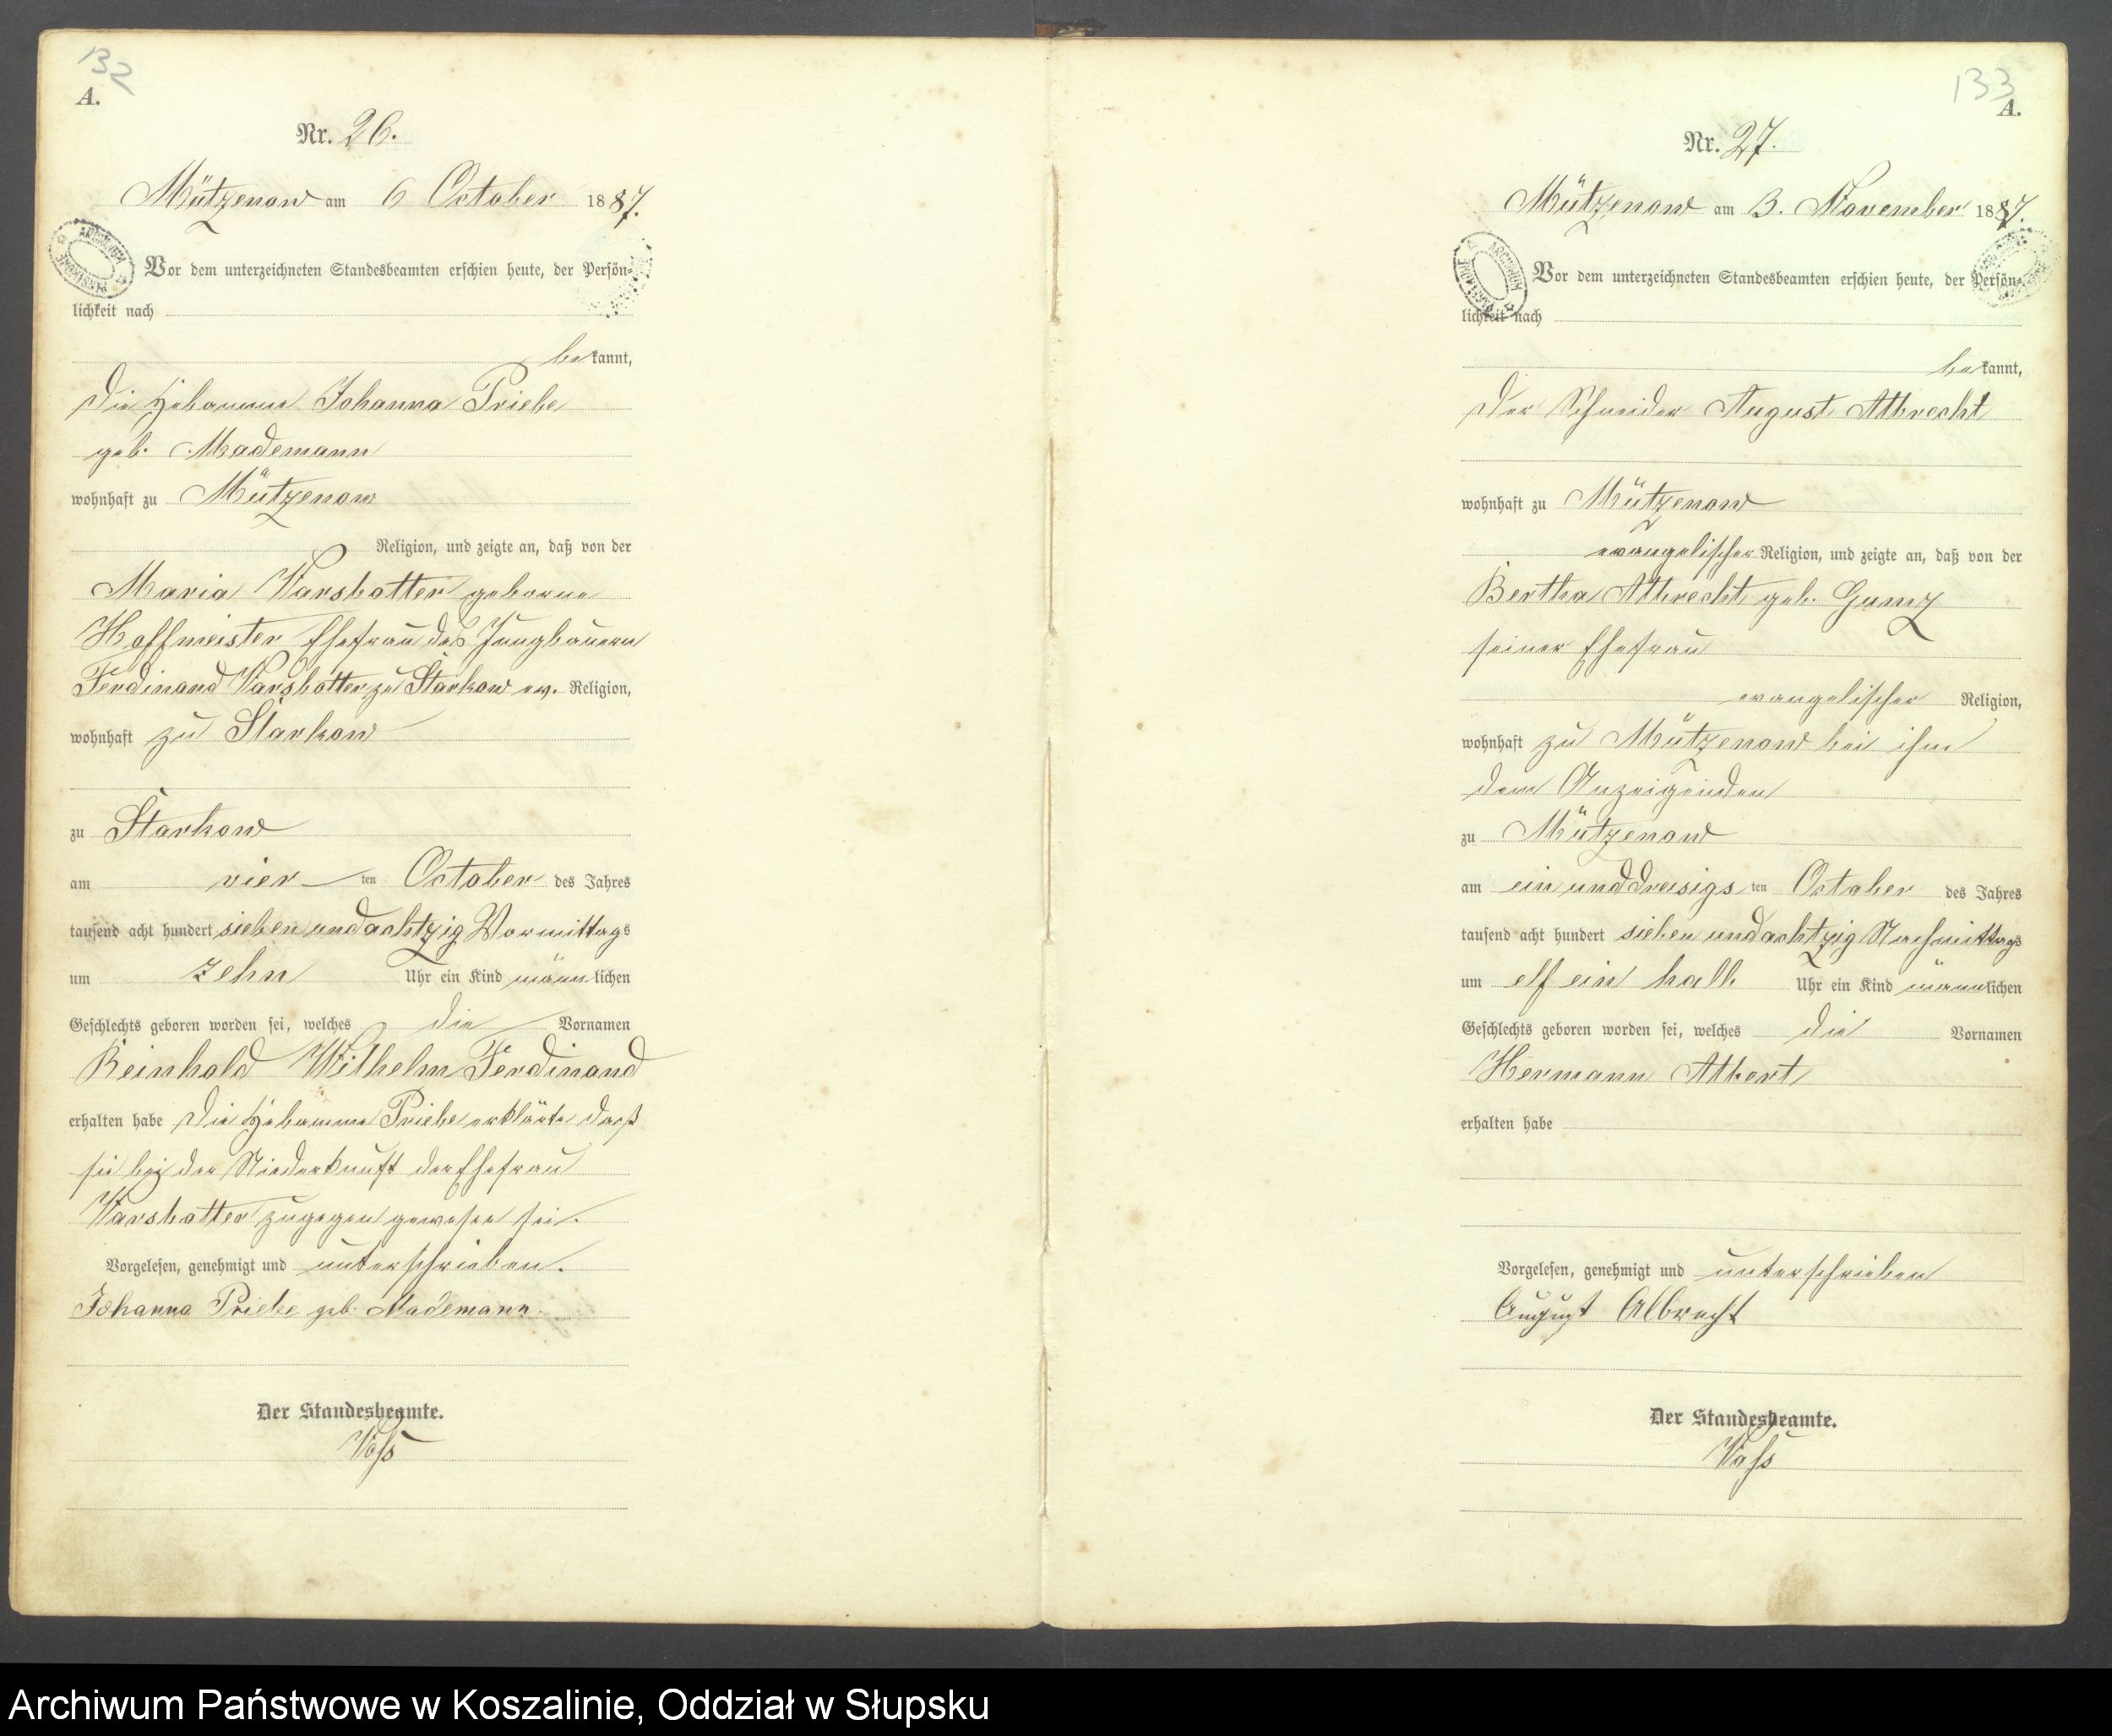 132
A.
Nr. 26.
Mützenow am 6 October 1887.
Vor dem unterzeichneten Standesbeamten erschien heute, der Persön-
lichkeit nach
bekannt,
die Hebamme Johanna Priebe
geb. Mademann
wohnhaft zu Mützenow
Religion, und zeigte an, daß von der
Maria Varsbotter geborne
Hoffmeister Ehefrau des Jungbauern
Ferdinand Varsbotter zu Starkow ev. Religion,
wohnhaft zu Starkow
zu Starkow
am vier ten October des Jahres
tausend acht hundert sieben und achtzig Vormittags
um zehn Uhr ein Kind männlichen
Geschlechts geboren worden sei, welches die Vornamen
Reinhold Wilhelm Ferdinand
erhalten habe die Hebamme Priebe erklärte daß
sie bei der Niederkunft der Ehefrau
Varsbotter zugegen gewesen sei.
Vorgelesen, genehmigt und unterschrieben.
Johanna Priebe geb. Mademann.
Der Standesbeamte.
Voß
133
A.
Nr. 27.
Mützenow am 3. November 1887.
Vor dem unterzeichneten Standesbeamten erschien heute, der Persön-
lichkeit nach
bekannt,
der Schneider August Albrecht
wohnhaft zu Mützenow
evangelischer Religion, und zeigte an, daß von der
Bertha Albrecht geb. Gumz
seiner Ehefrau
evangelischer Religion,
wohnhaft zu Mützenow bei ihm
dem Anzeigenden
zu Mützenow
am ein und dreisigs ten October des Jahres
tausend acht hundert sieben und achtzig Nachmittags
um elf ein halb Uhr ein Kind männlichen
Geschlechts geboren worden sei, welches die Vornamen
Hermann Albert
erhalten habe
Vorgelesen, genehmigt und unterschrieben
August Albrecht
Der Standesbeamte.
Voß
Archiwum Państwowe w Koszalinie, Oddział w Słupsku